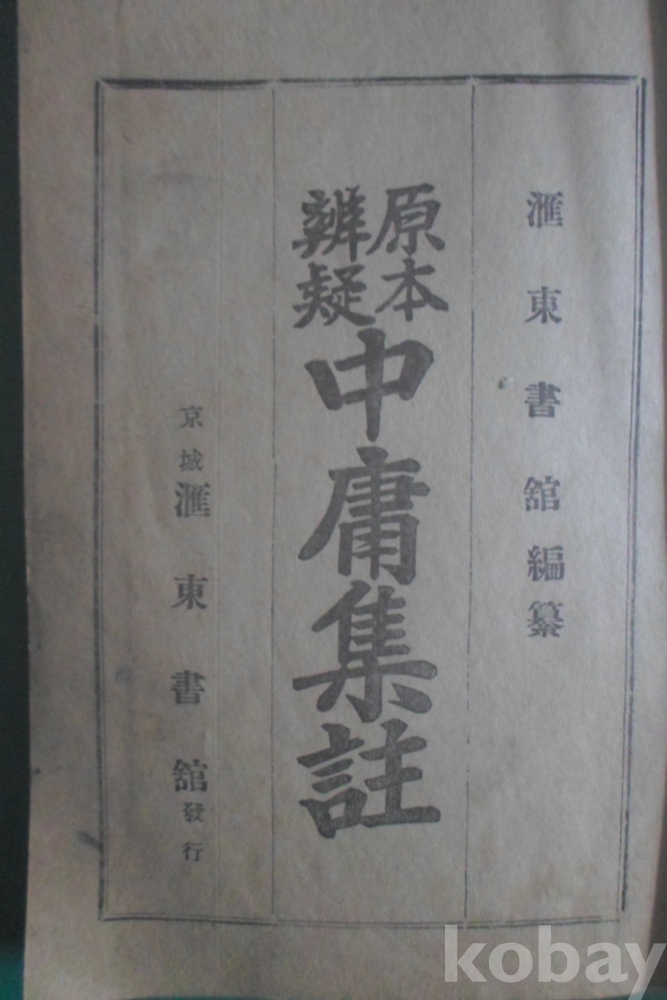 滙東書舘編纂
原本
辨疑
中庸集註
京城滙東書舘發行
kobay